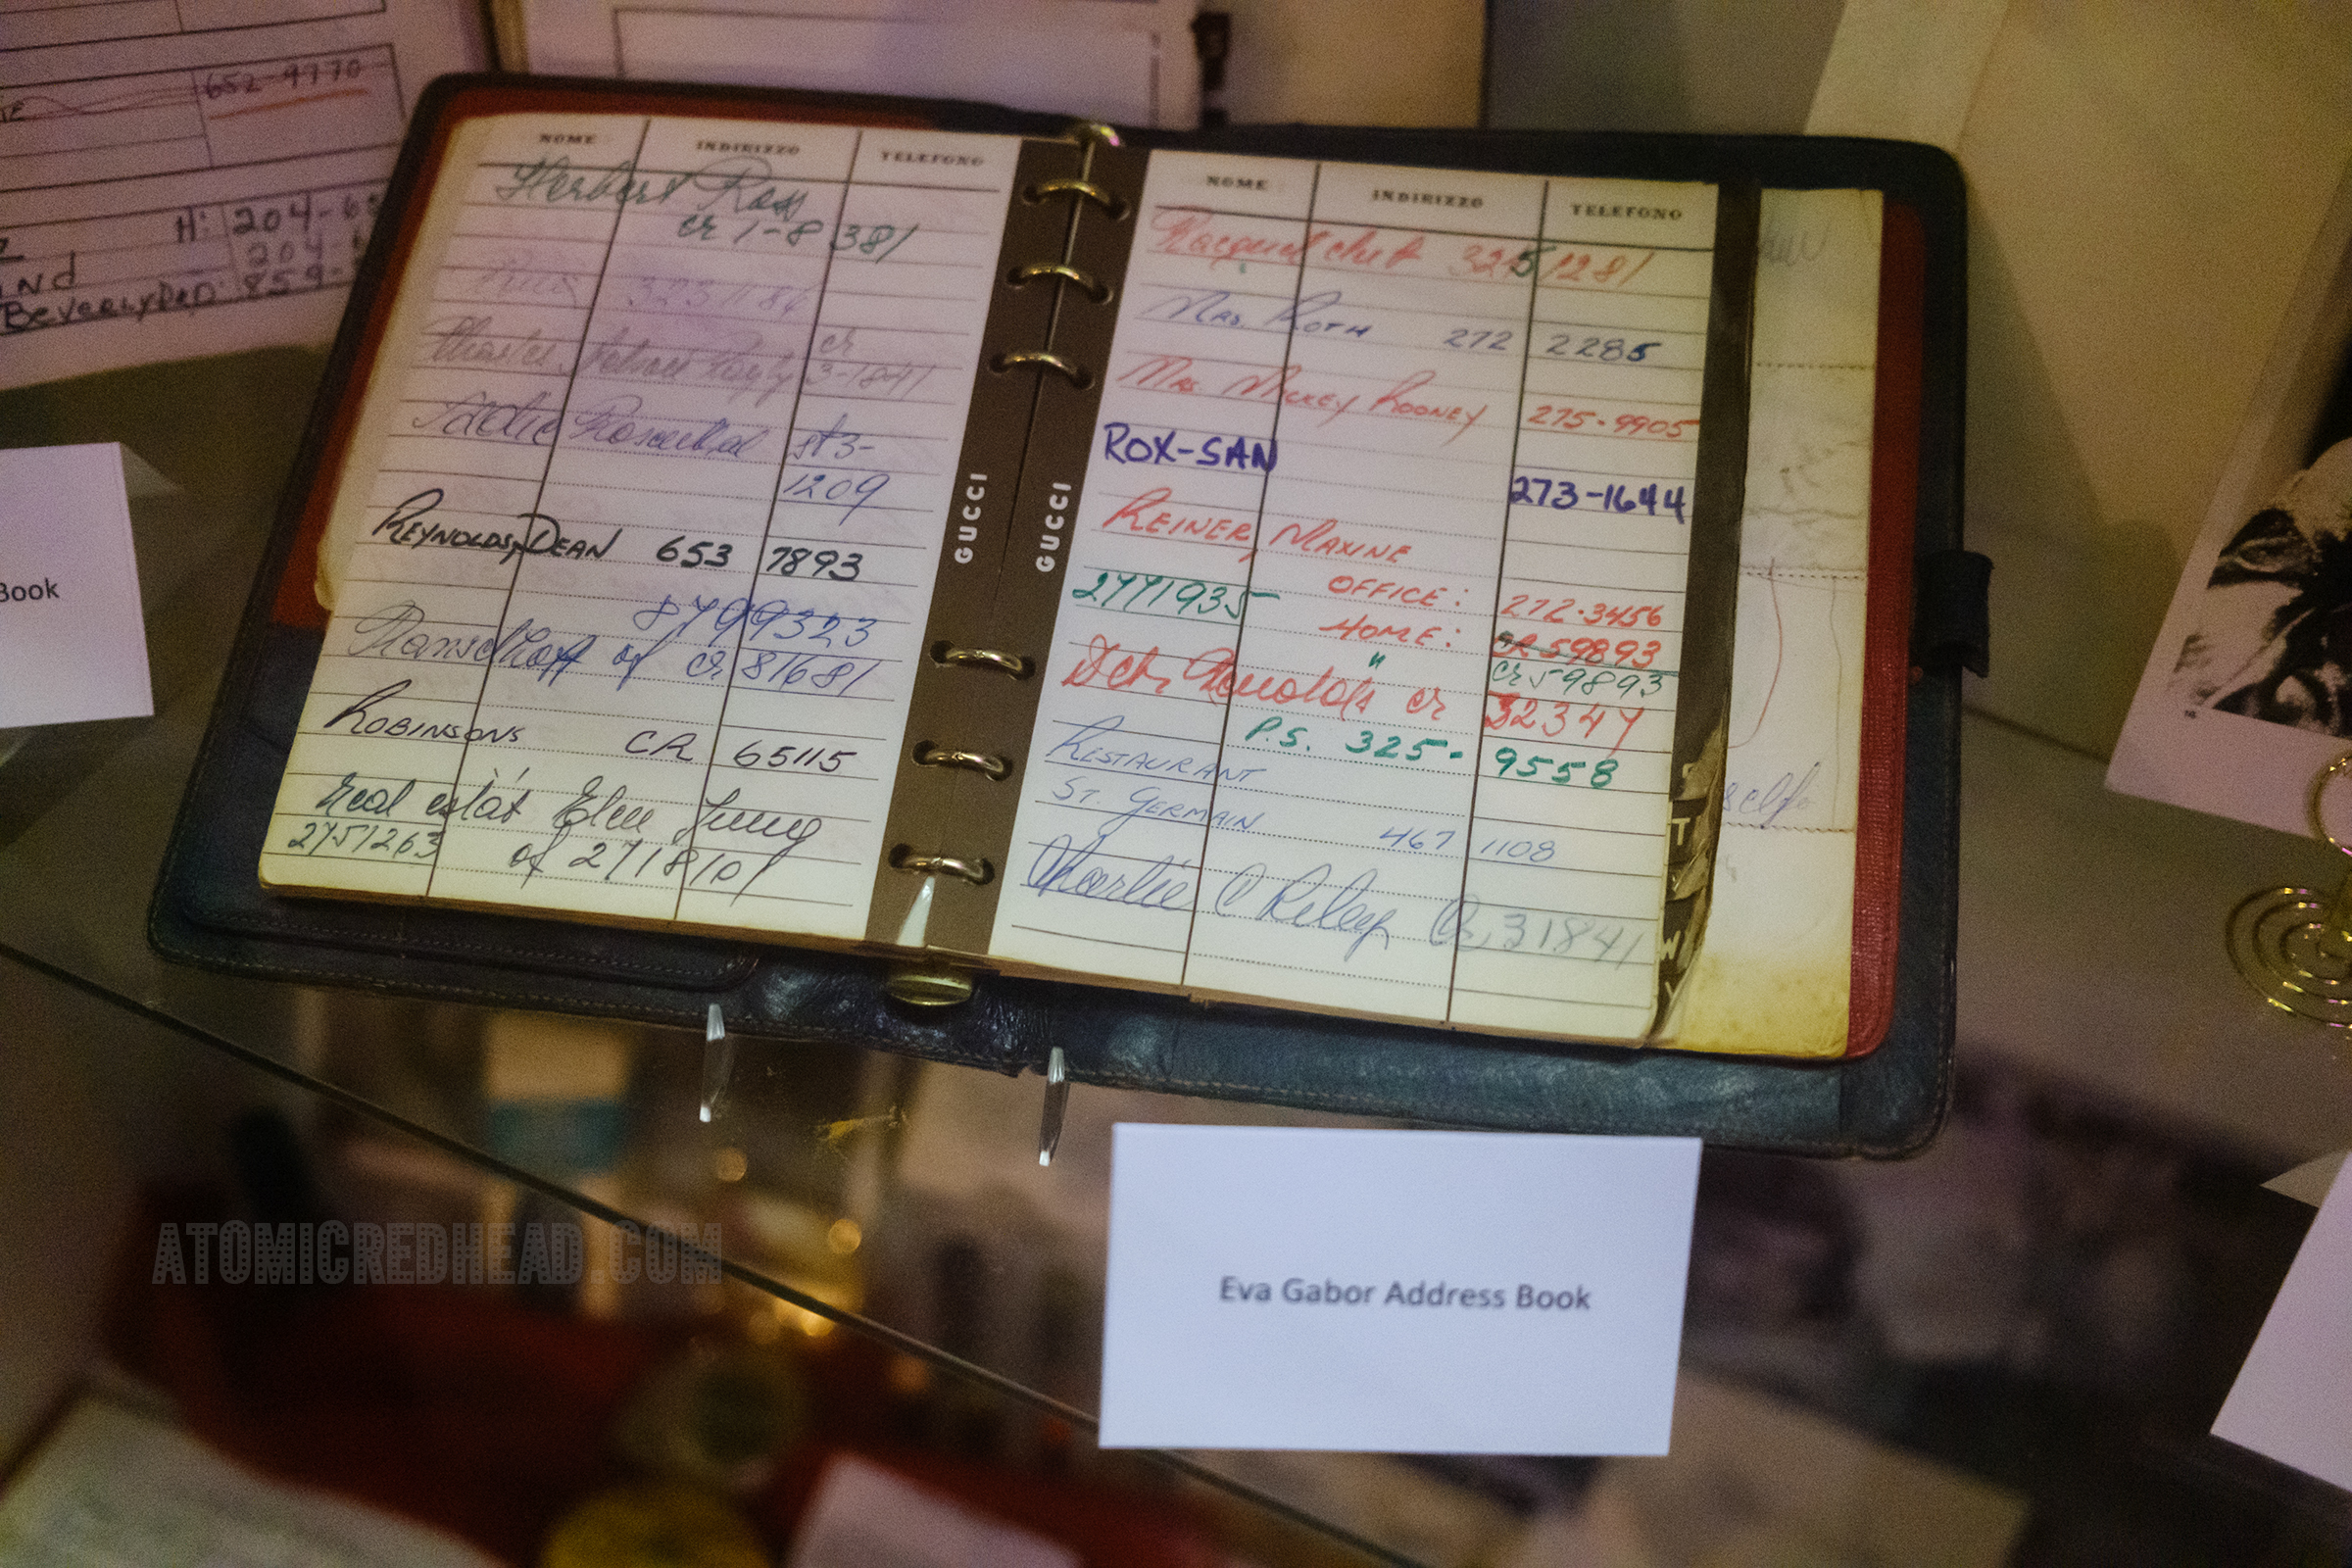 652-9770
H: 204-6
204-
Nd
Beverly Den 859-
Book
NOME INDIRIZZO TELEFONO
Herbert Ross
cr 1-8381
3231186
cr
3-1841
st 3-
1209
REYNOLDS, DEAN 653 7893
8799323
of cr 81681
ROBINSONS CR 65115
real estat
2751263 of 2718101
GUCCI
GUCCI
NOME INDIRIZZO TELEFONO
Racquet club 3251281
MRS. ROTH 272 2285
MRS. MICKEY ROONEY 275-9905
ROX-SAN
273-1644
REINER, MAXINE
2771935 OFFICE: 272-3456
HOME: CR 59893
" cr 59893
cr 32347
P.S. 325-9558
RESTAURANT
ST. GERMAIN 467 1108
Charlie O Riley Cr. 31841
T
W
ATOMICREDHEAD.COM
Eva Gabor Address Book